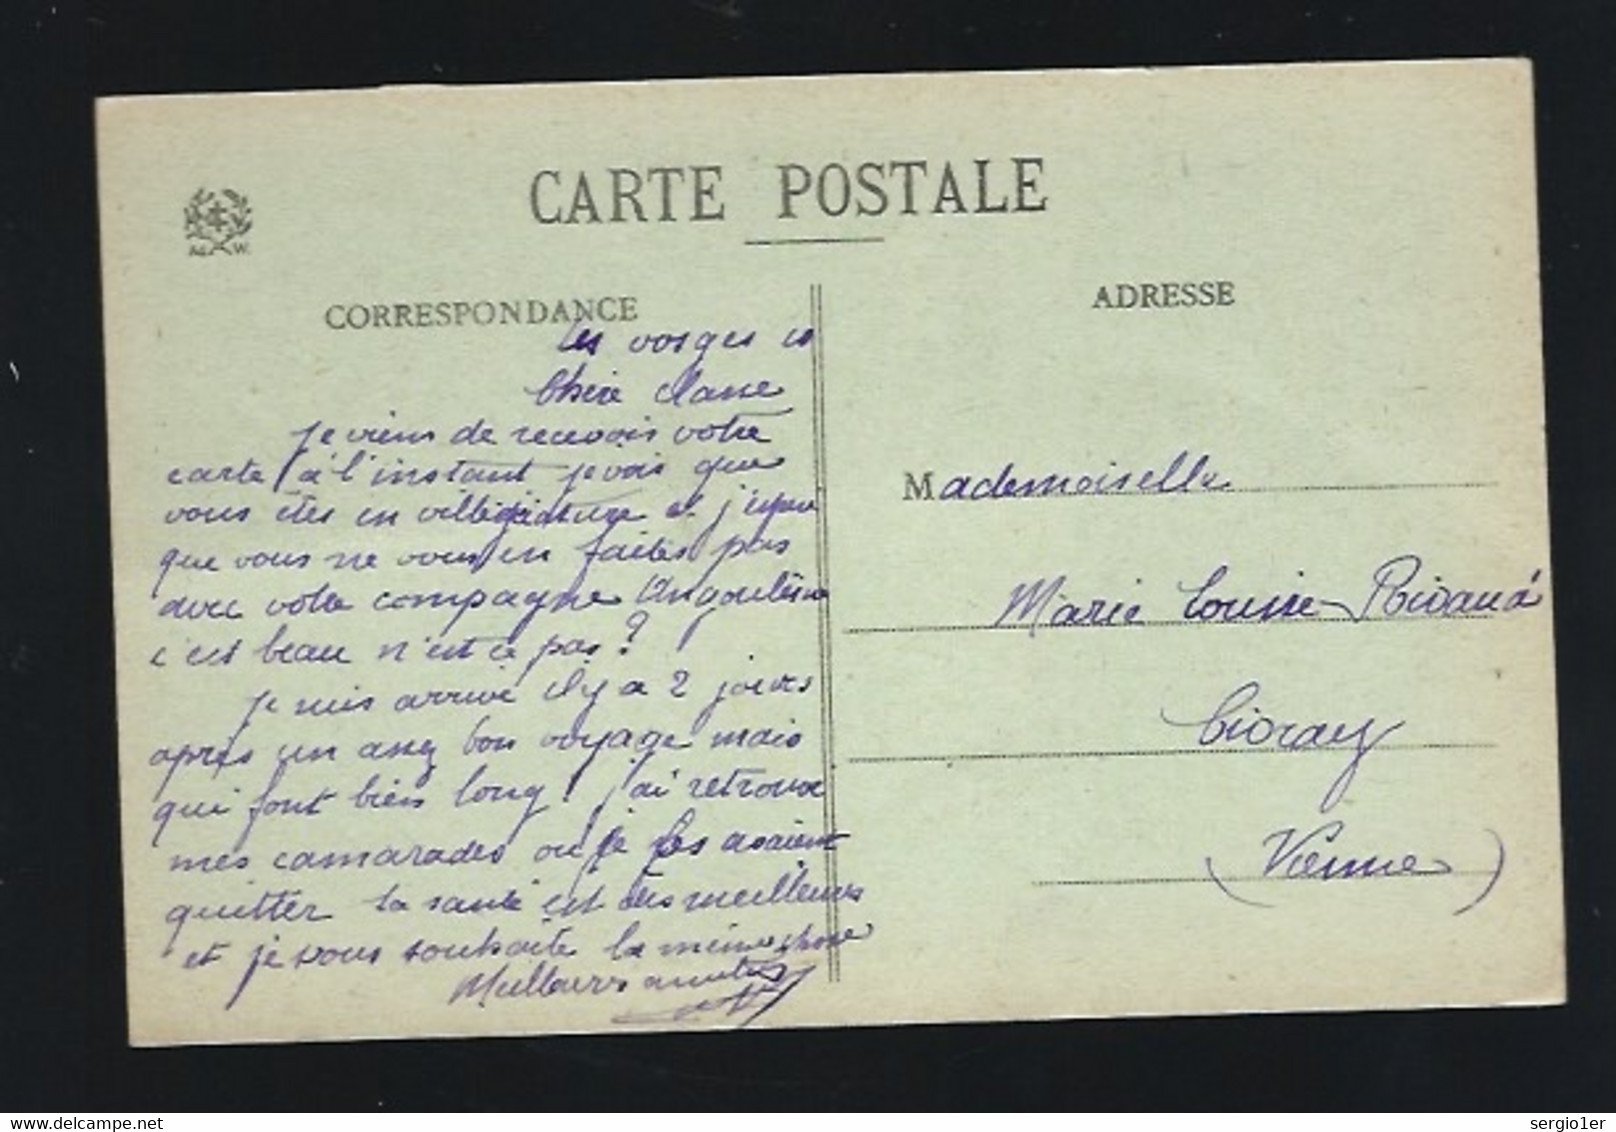 CARTE POSTALE
CORRESPONDANCE
Les Vosges
Chère
Je viens de recevoir votre
carte à l'instant je vois que
vous êtes en villégiature et j'espère
que vous ne vous en faites pas
avec votre compagne Angoulême
c'est beau n'est ce pas ?
Je suis arrivé il y a 2 jours
après un assez bon voyage mais
qui font bien long ! j'ai retrouvé
mes camarades ou je les avaient
quitter la santé est des meilleures
et je vous souhaite la même chose
Meilleures amitiés
ADRESSE
Mademoiselle
Marie Louise Rivaud
Civray
(Vienne)
www.delcampe.net
sergio1er